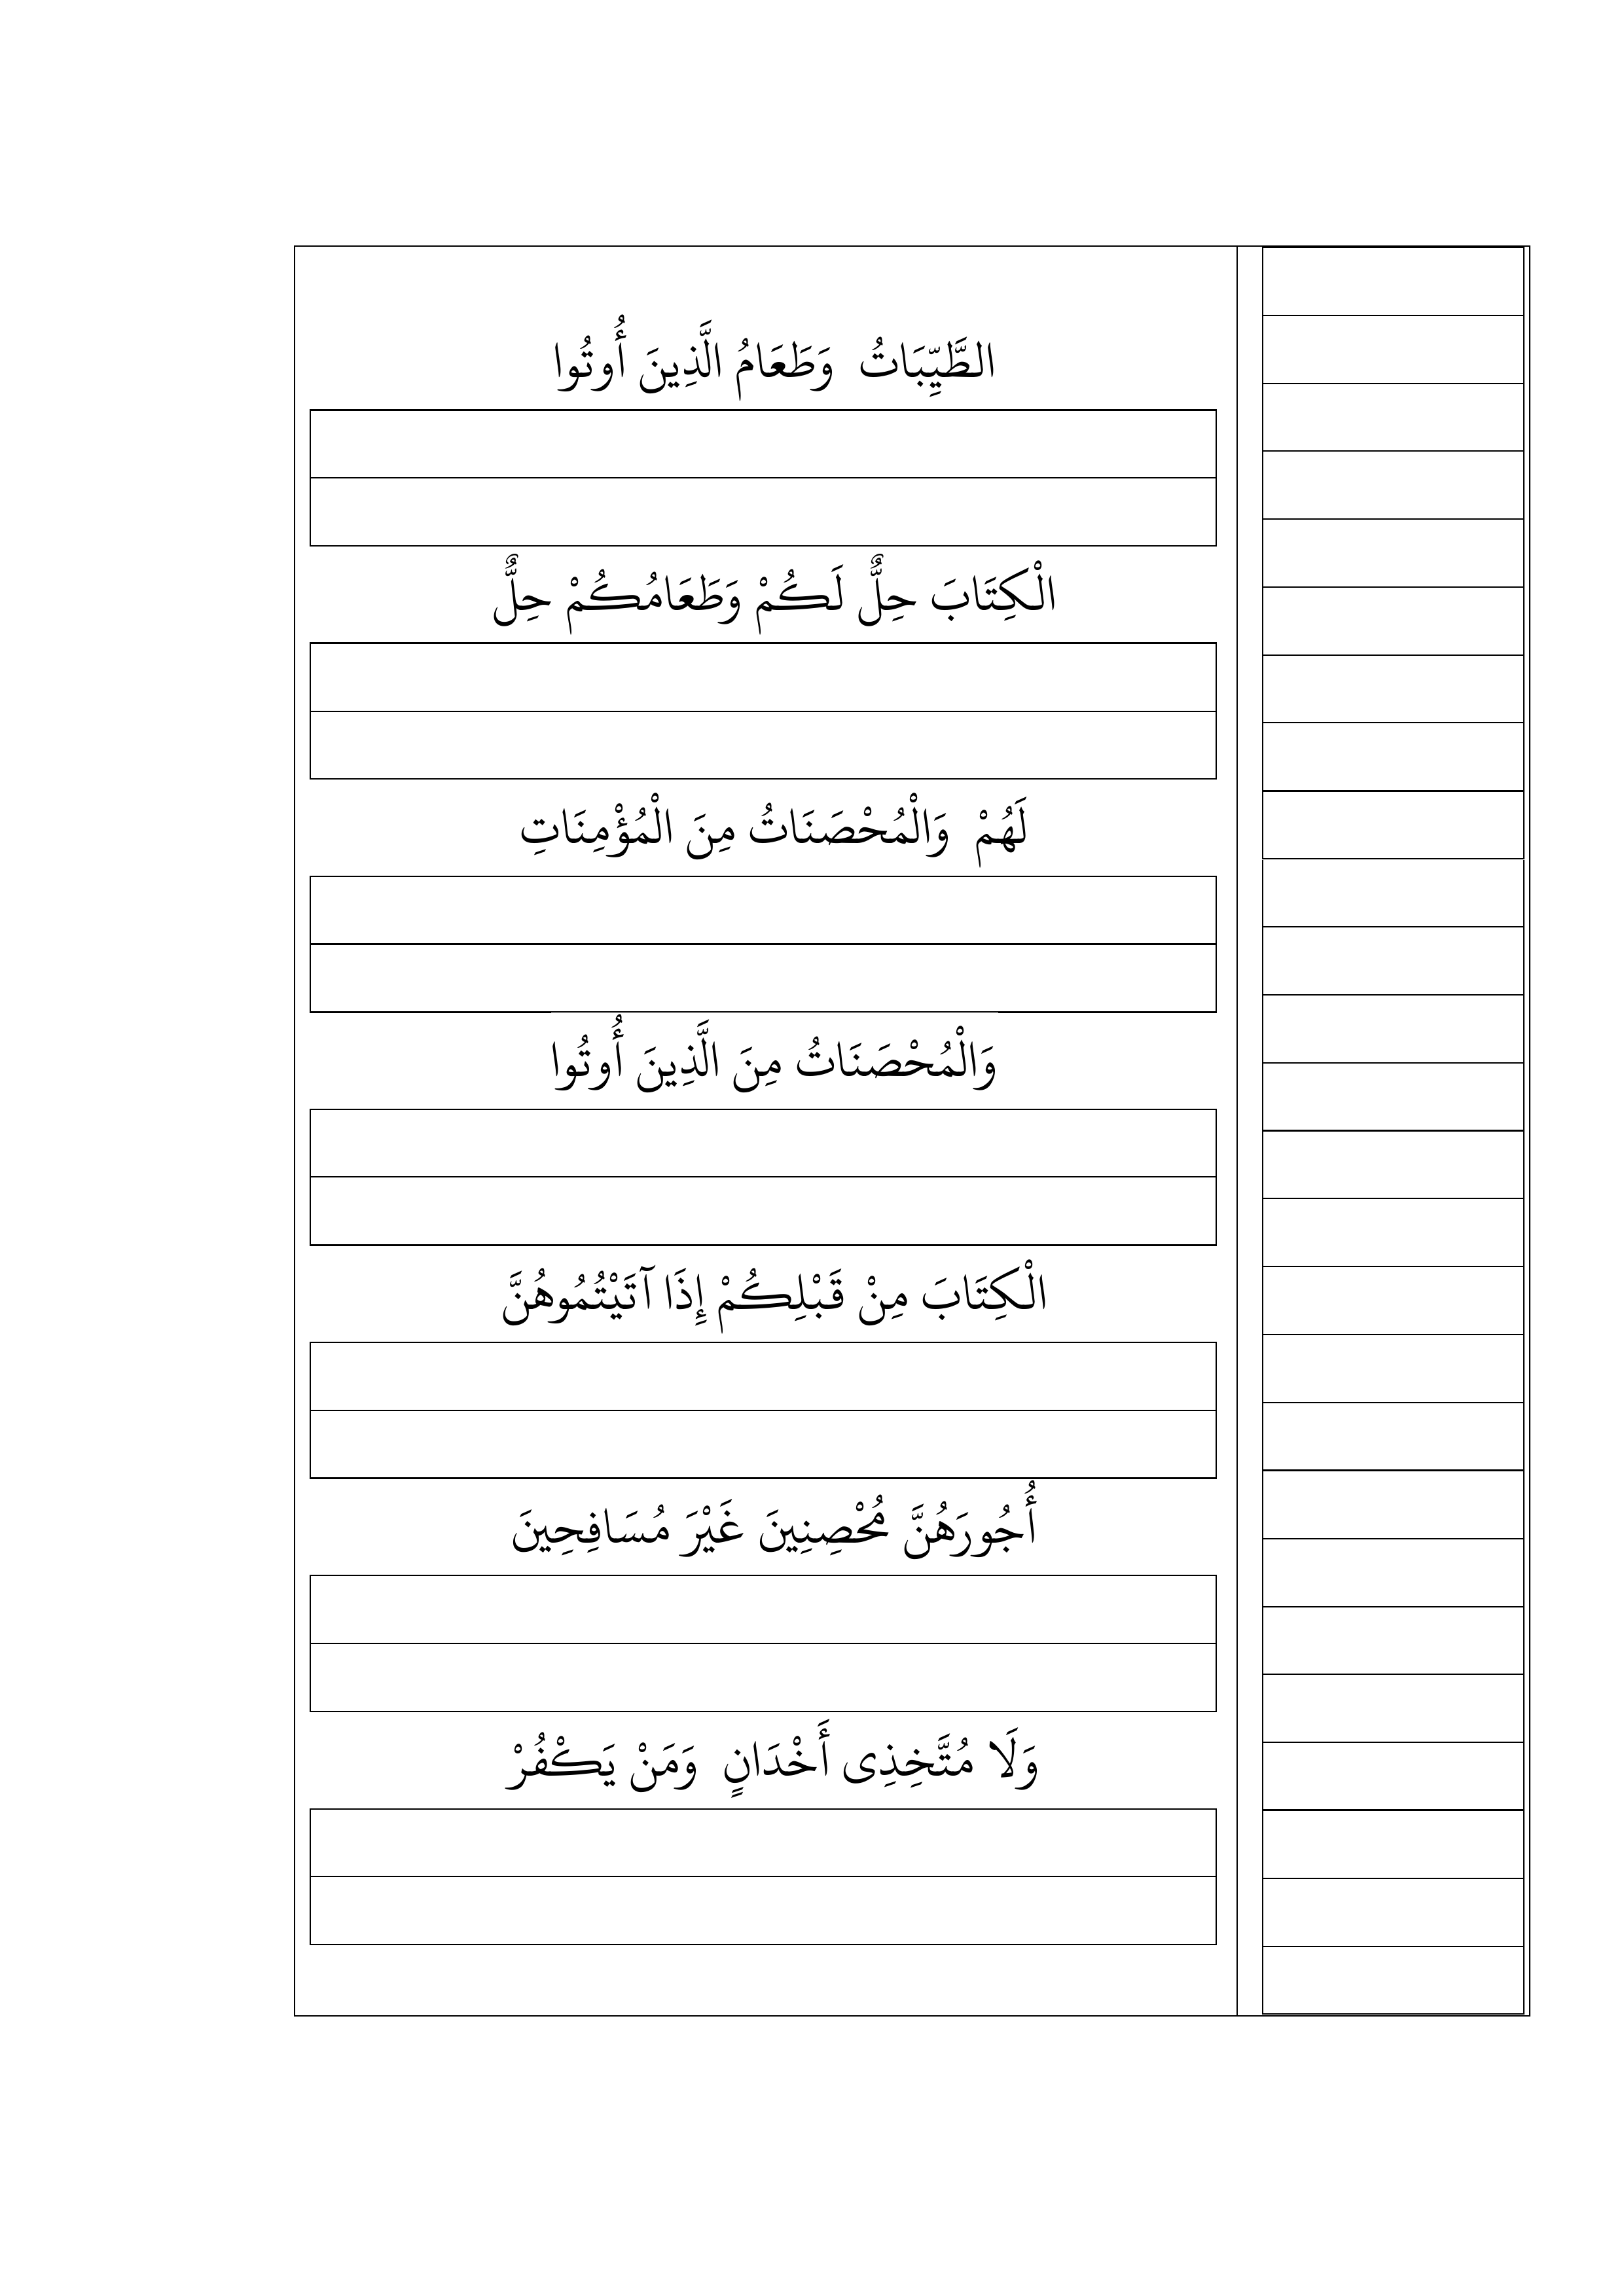 الطَّيِّبَاتُ وَطَعَامُ الَّذِينَ أُوتُوا
الْكِتَابَ حِلٌّ لَكُمْ وَطَعَامُكُمْ حِلٌّ
لَهُمْ وَالْمُحْصَنَاتُ مِنَ الْمُؤْمِنَاتِ
وَالْمُحْصَنَاتُ مِنَ الَّذِينَ أُوتُوا
الْكِتَابَ مِنْ قَبْلِكُمْ إِذَا آتَيْتُمُوهُنَّ
أُجُورَهُنَّ مُحْصِنِينَ غَيْرَ مُسَافِحِينَ
وَلَا مُتَّخِذِى أَخْدَانٍ وَمَنْ يَكْفُرْ